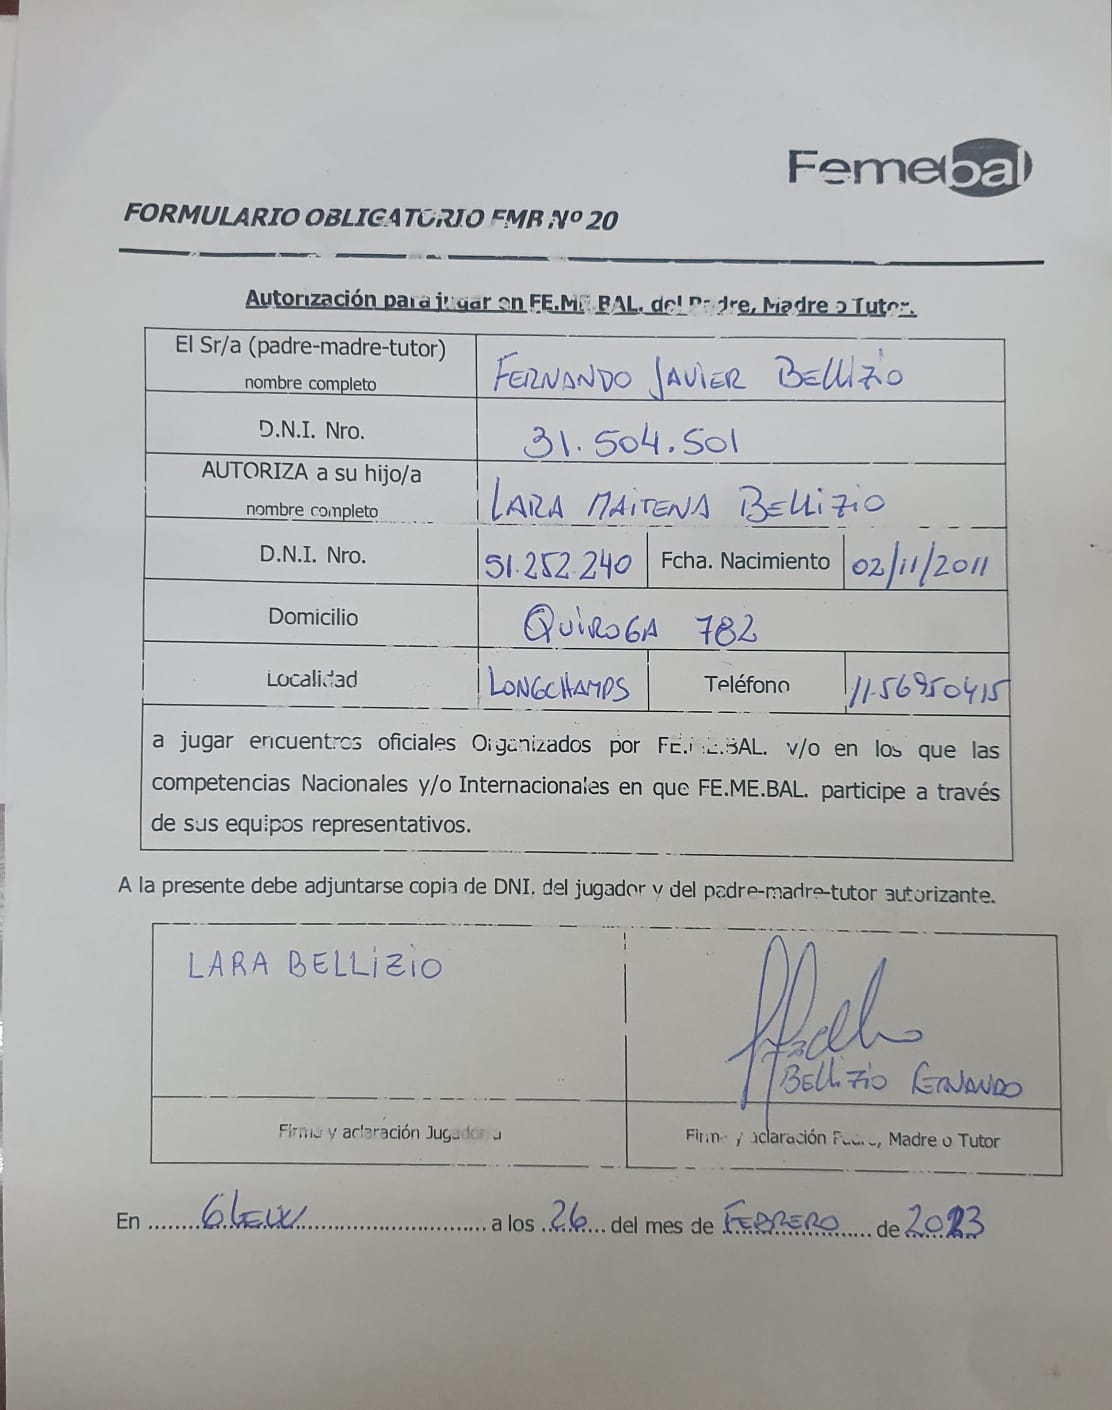 Femebal
FORMULARIO OBLIGATORIO FMB Nº 20
Autorización para jugar en FE.ME.BAL. del Padre, Madre o Tutor.
El Sr/a (padre-madre-tutor)
nombre completo
FERNANDO JAVIER BELLIZIO
D.N.I. Nro.
31.504.501
AUTORIZA a su hijo/a
nombre completo
LARA MAITENA BELLIZIO
D.N.I. Nro.
51.252.240
Fcha. Nacimiento
02/11/2011
Domicilio
QUIROGA 782
Localidad
LONGCHAMPS
Teléfono
11.56950415
a jugar encuentros oficiales Organizados por FE.ME.BAL. y/o en los que las
competencias Nacionales y/o Internacionales en que FE.ME.BAL. participe a través
de sus equipos representativos.
A la presente debe adjuntarse copia de DNI. del jugador y del padre-madre-tutor autorizante.
LARA BELLIZIO
BELLIZIO FERNANDO
Firma y aclaración Jugador/a
Firma y aclaración Padre, Madre o Tutor
En ........GLEW........ a los ..26.. del mes de FEBRERO.... de 2023